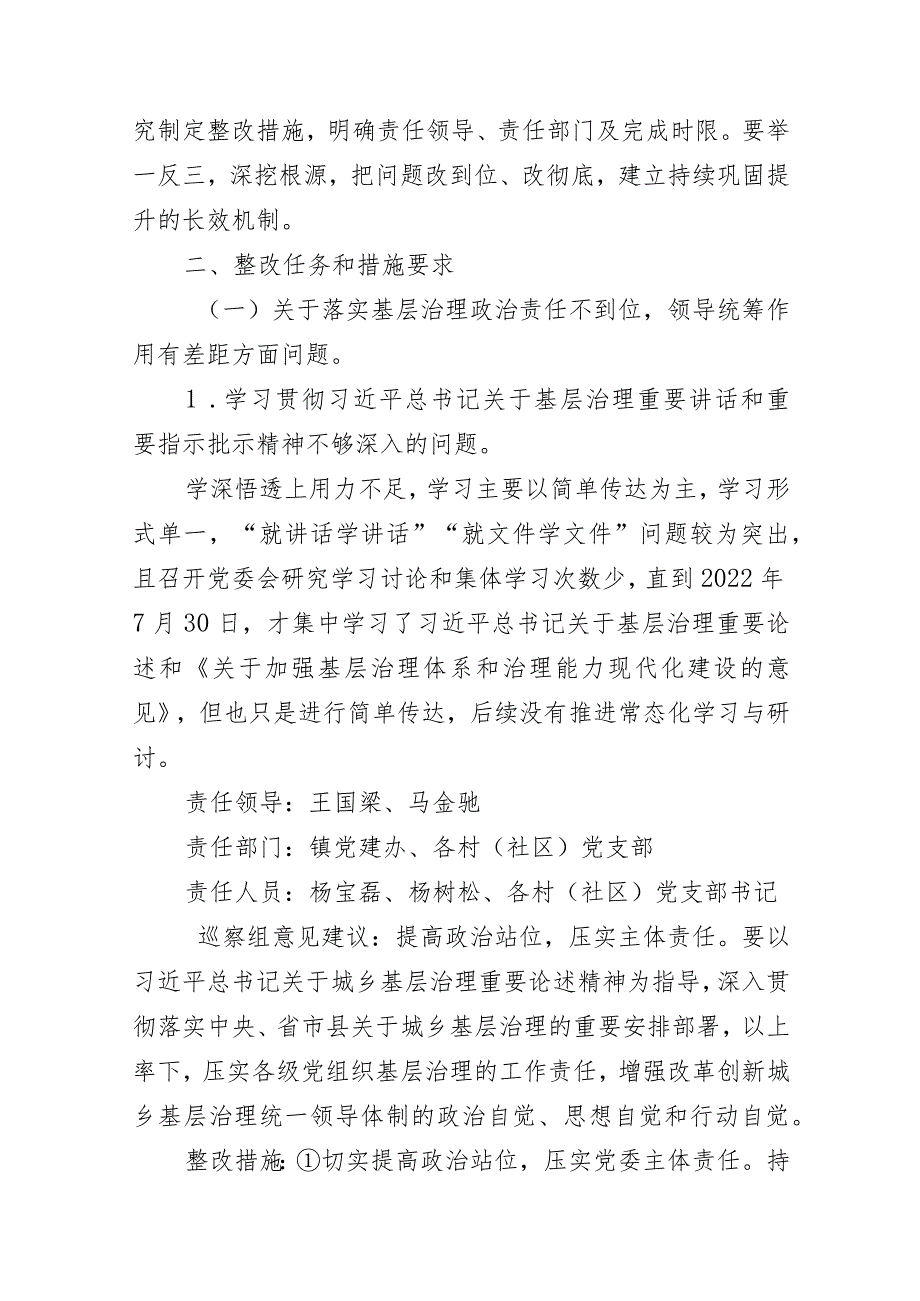 究制定整改措施，明确责任领导、责任部门及完成时限。要举
一反三，深挖根源，把问题改到位、改彻底，建立持续巩固提
升的长效机制。
二、整改任务和措施要求
（一）关于落实基层治理政治责任不到位，领导统筹作
用有差距方面问题。
1 .学习贯彻习近平总书记关于基层治理重要讲话和重
要指示批示精神不够深入的问题。
学深悟透上用力不足，学习主要以简单传达为主，学习形
式单一，“就讲话学讲话”“就文件学文件”问题较为突出，
且召开党委会研究学习讨论和集体学习次数少，直到 2022 年
7 月 30 日，才集中学习了习近平总书记关于基层治理重要论
述和《关于加强基层治理体系和治理能力现代化建设的意
见》，但也只是进行简单传达，后续没有推进常态化学习与研
讨。
责任领导：王国梁、马金驰
责任部门：镇党建办、各村（社区）党支部
责任人员：杨宝磊、杨树松、各村（社区）党支部书记
巡察组意见建议：提高政治站位，压实主体责任。要以
习近平总书记关于城乡基层治理重要论述精神为指导，深入贯
彻落实中央、省市县关于城乡基层治理的重要安排部署，以上
率下，压实各级党组织基层治理的工作责任，增强改革创新城
乡基层治理统一领导体制的政治自觉、思想自觉和行动自觉。
整改措施：①切实提高政治站位，压实党委主体责任。持